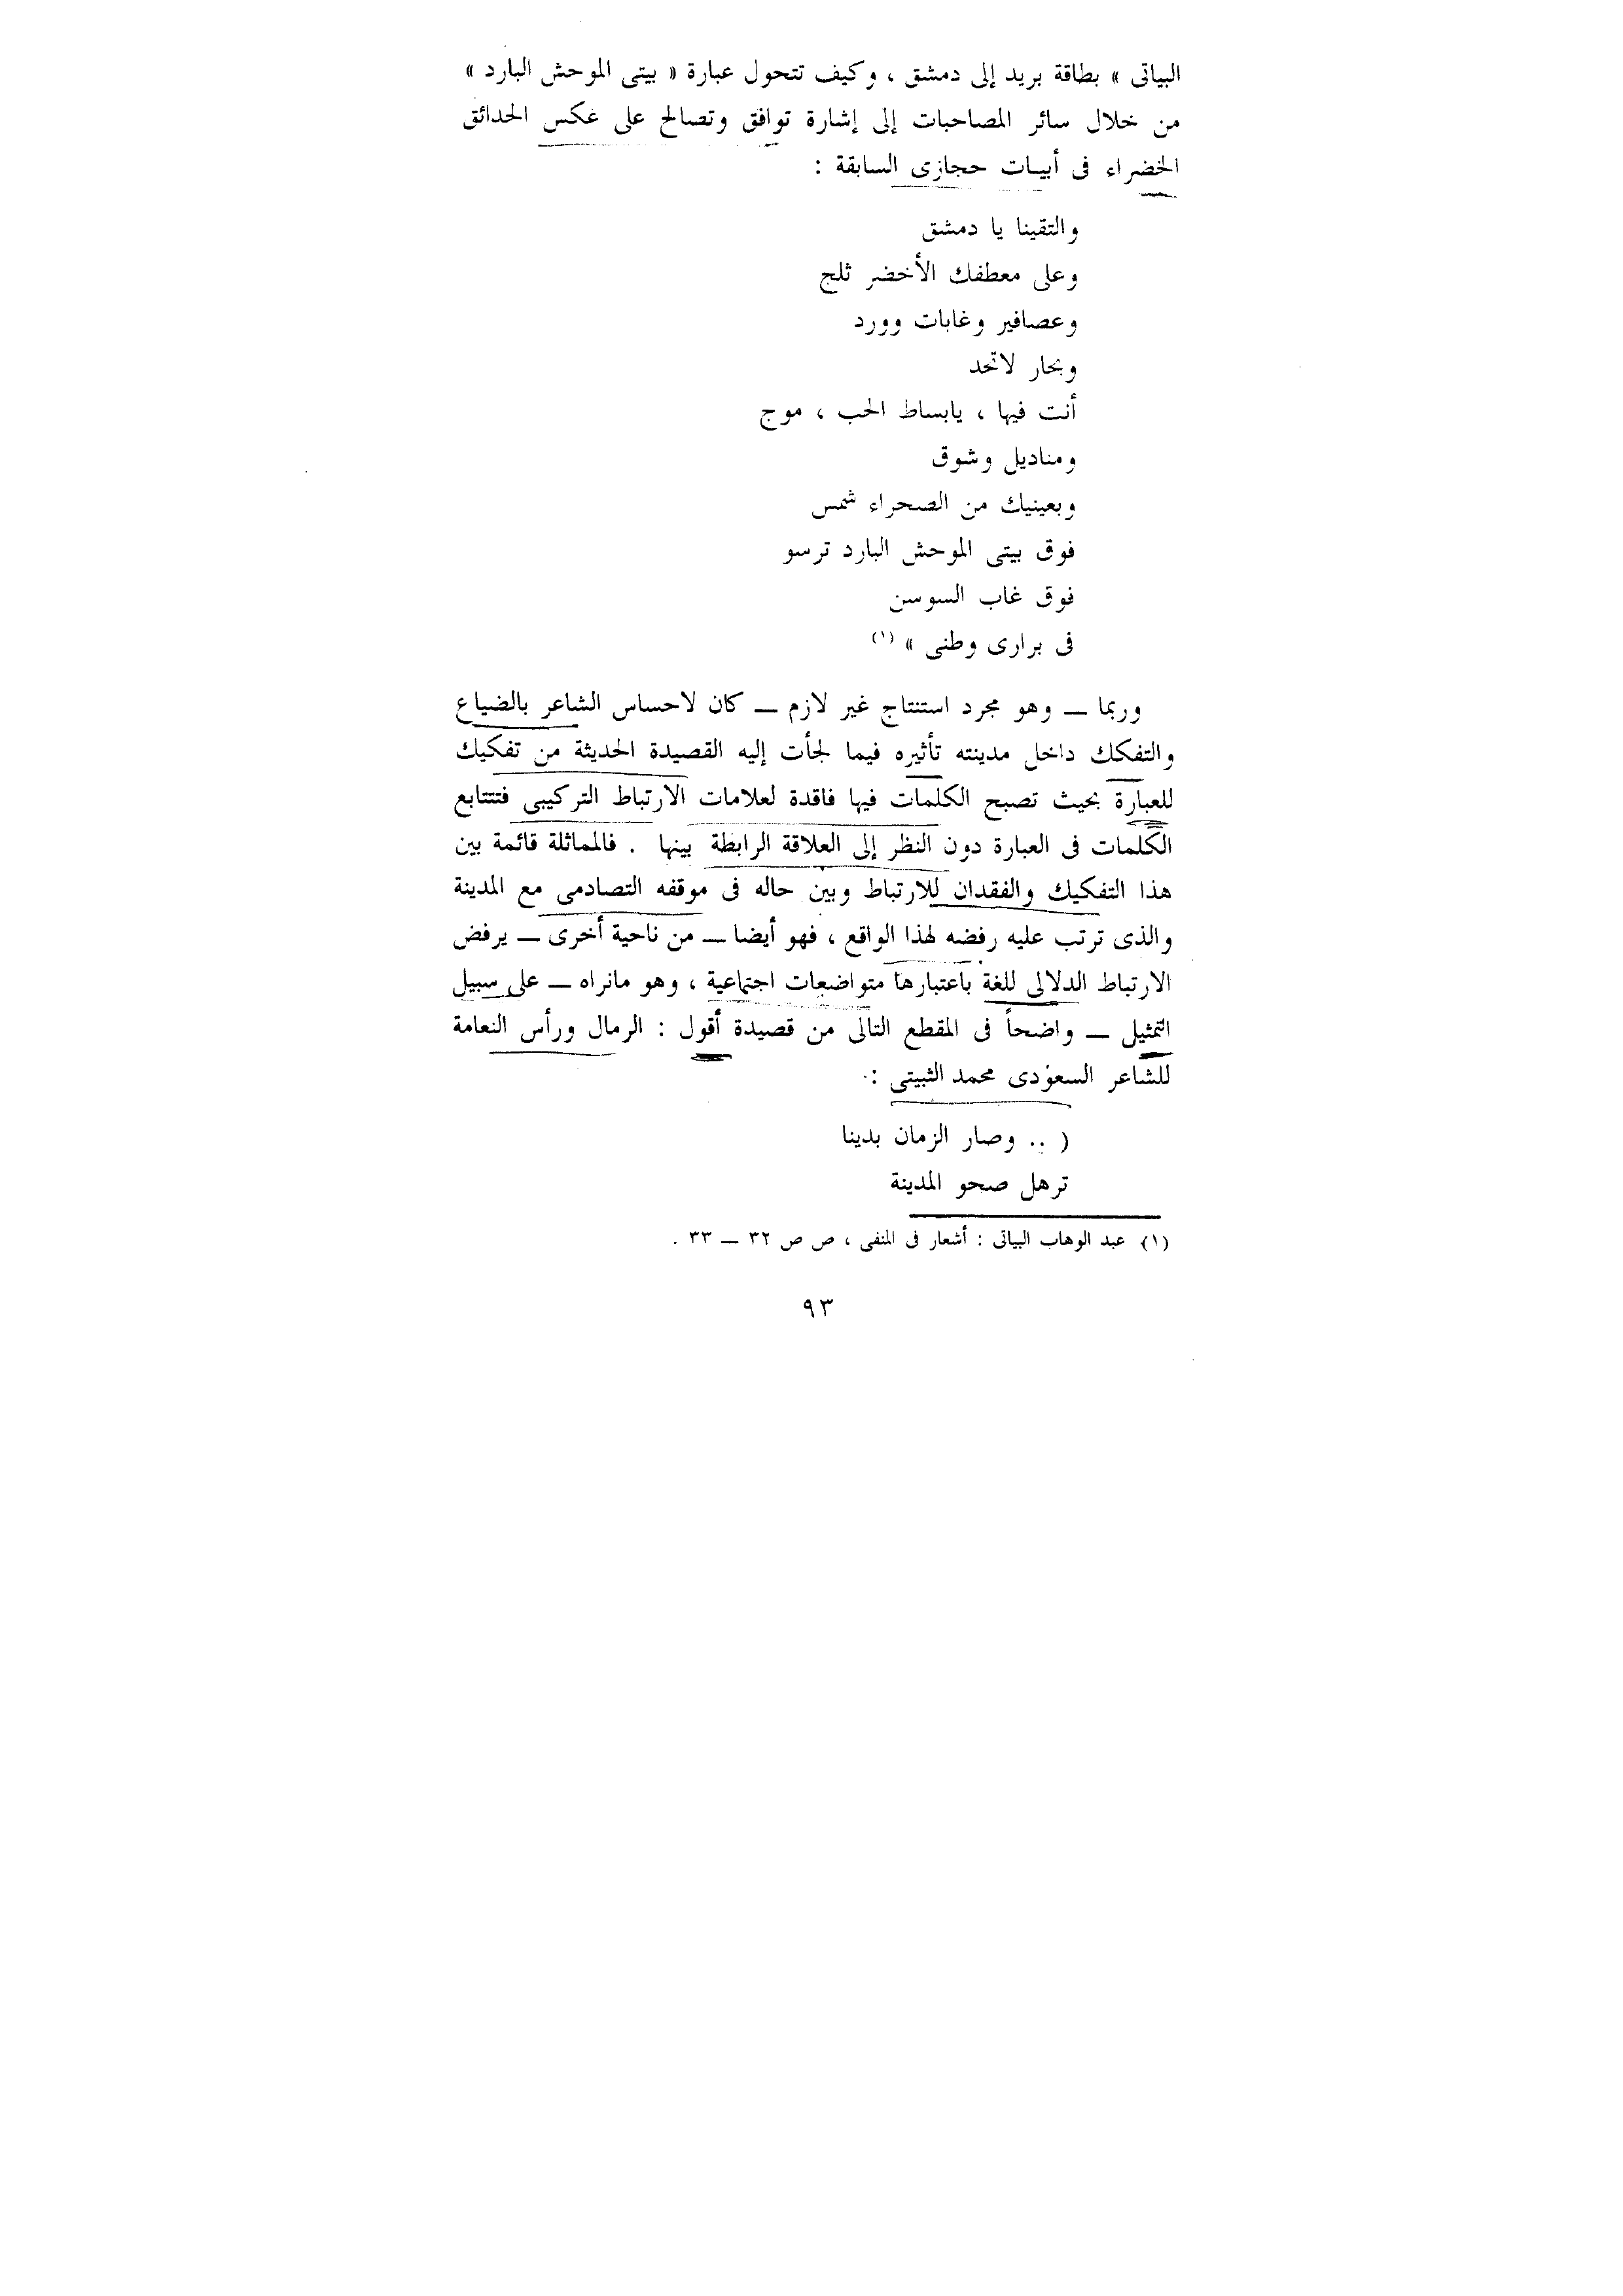 البياتى » بطاقة بريد إلى دمشق ، وكيف تتحول عبارة « بيتى الموحش البارد »
من خلال سائر المصاحبات إلى إشارة توافق وتصالح على عكس الحدائق
الخضراء فى أبيات حجازى السابقة :
والتقينا يا دمشق
وعلى معطفك الأخضر ثلج
وعصافير وغابات وورد
وبحار لاتحد
أنت فيها ، يابساط الحب ، موج
ومناديل وشوق
وبعينيك من الصحراء شمس
فوق بيتى الموحش البارد ترسو
فوق غاب السوسن
فى برارى وطنى » (١)
وربما ــ وهو مجرد استنتاج غير لازم ــ كان لاحساس الشاعر بالضياع
والتفكك داخل مدينته تأثيره فيما لجأت إليه القصيدة الحديثة من تفكيك
للعبارة بحيث تصبح الكلمات فيها فاقدة لعلامات الارتباط التركيبى فتتتابع
الكلمات فى العبارة دون النظر إلى العلاقة الرابطة بينها . فالمماثلة قائمة بين
هذا التفكيك والفقدان للارتباط وبين حاله فى موقفه التصادمى مع المدينة
والذى ترتب عليه رفضه لهذا الواقع ، فهو أيضا ــ من ناحية أخرى ــ يرفض
الارتباط الدلالى للغة باعتبارها متواضعات اجتماعية ، وهو مانراه ــ على سبيل
التمثيل ــ واضحاً فى المقطع التالى من قصيدة أقول : الرمال ورأس النعامة
للشاعر السعودى محمد الثبيتى :
( .. وصار الزمان بدينا
ترهل صحو المدينة
(١) عبد الوهاب البياتى : أشعار فى المنفى ، ص ص ٣٢ ــ ٣٣ .
٩٣